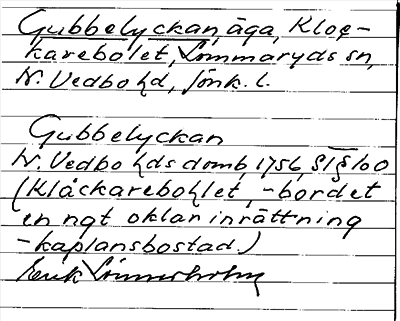 Gubbelyckan, äga, Kloc-
karebolet, Sommaryds sn,
N. Vedbo hd, Jönk. l.
Gubbelyckan
N. Vedbo hds domb, 1756, § 100
(Klåckarebohlet, -bordet
en ngt oklar inrättning
-kaplansbostad.)
Erik